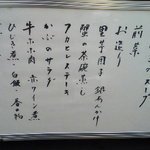 スープ
前菜
お造り
里芋団子 銀あんかけ
蟹の茶碗蒸し
フカヒレステーキ
かぶのサラダ
牛ホホ肉 赤ワイン煮
ひじき煮 白飯 香の物